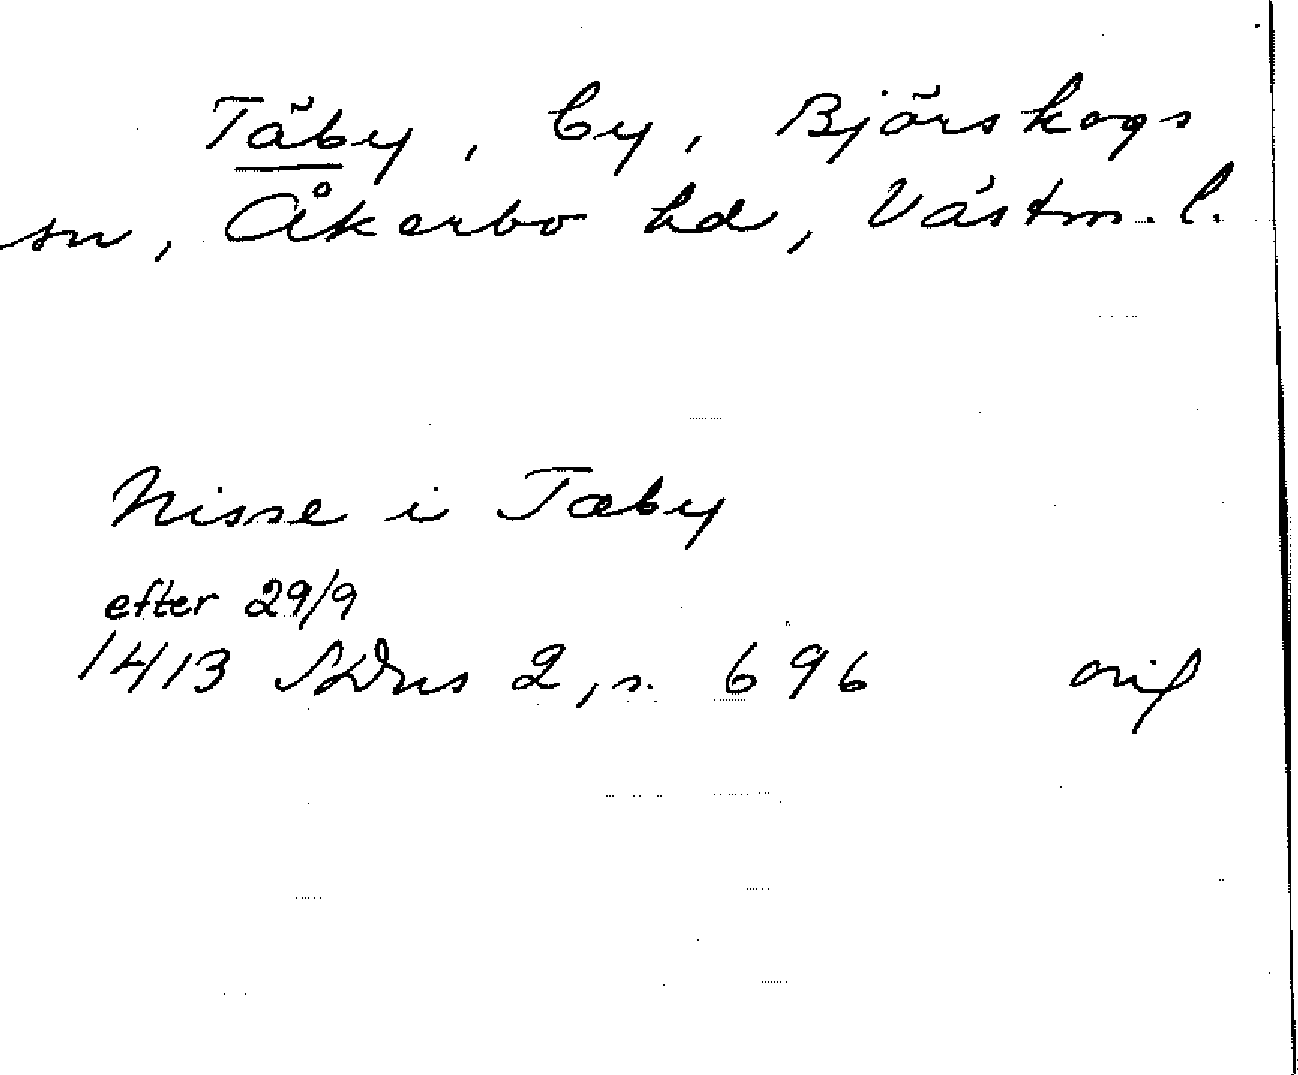 Täby, by, Björskogs
sn, Åkerbo hd, Västm. l.
Nisse i Tæby
efter 29/9
1413 SDns 2, s. 696 orig